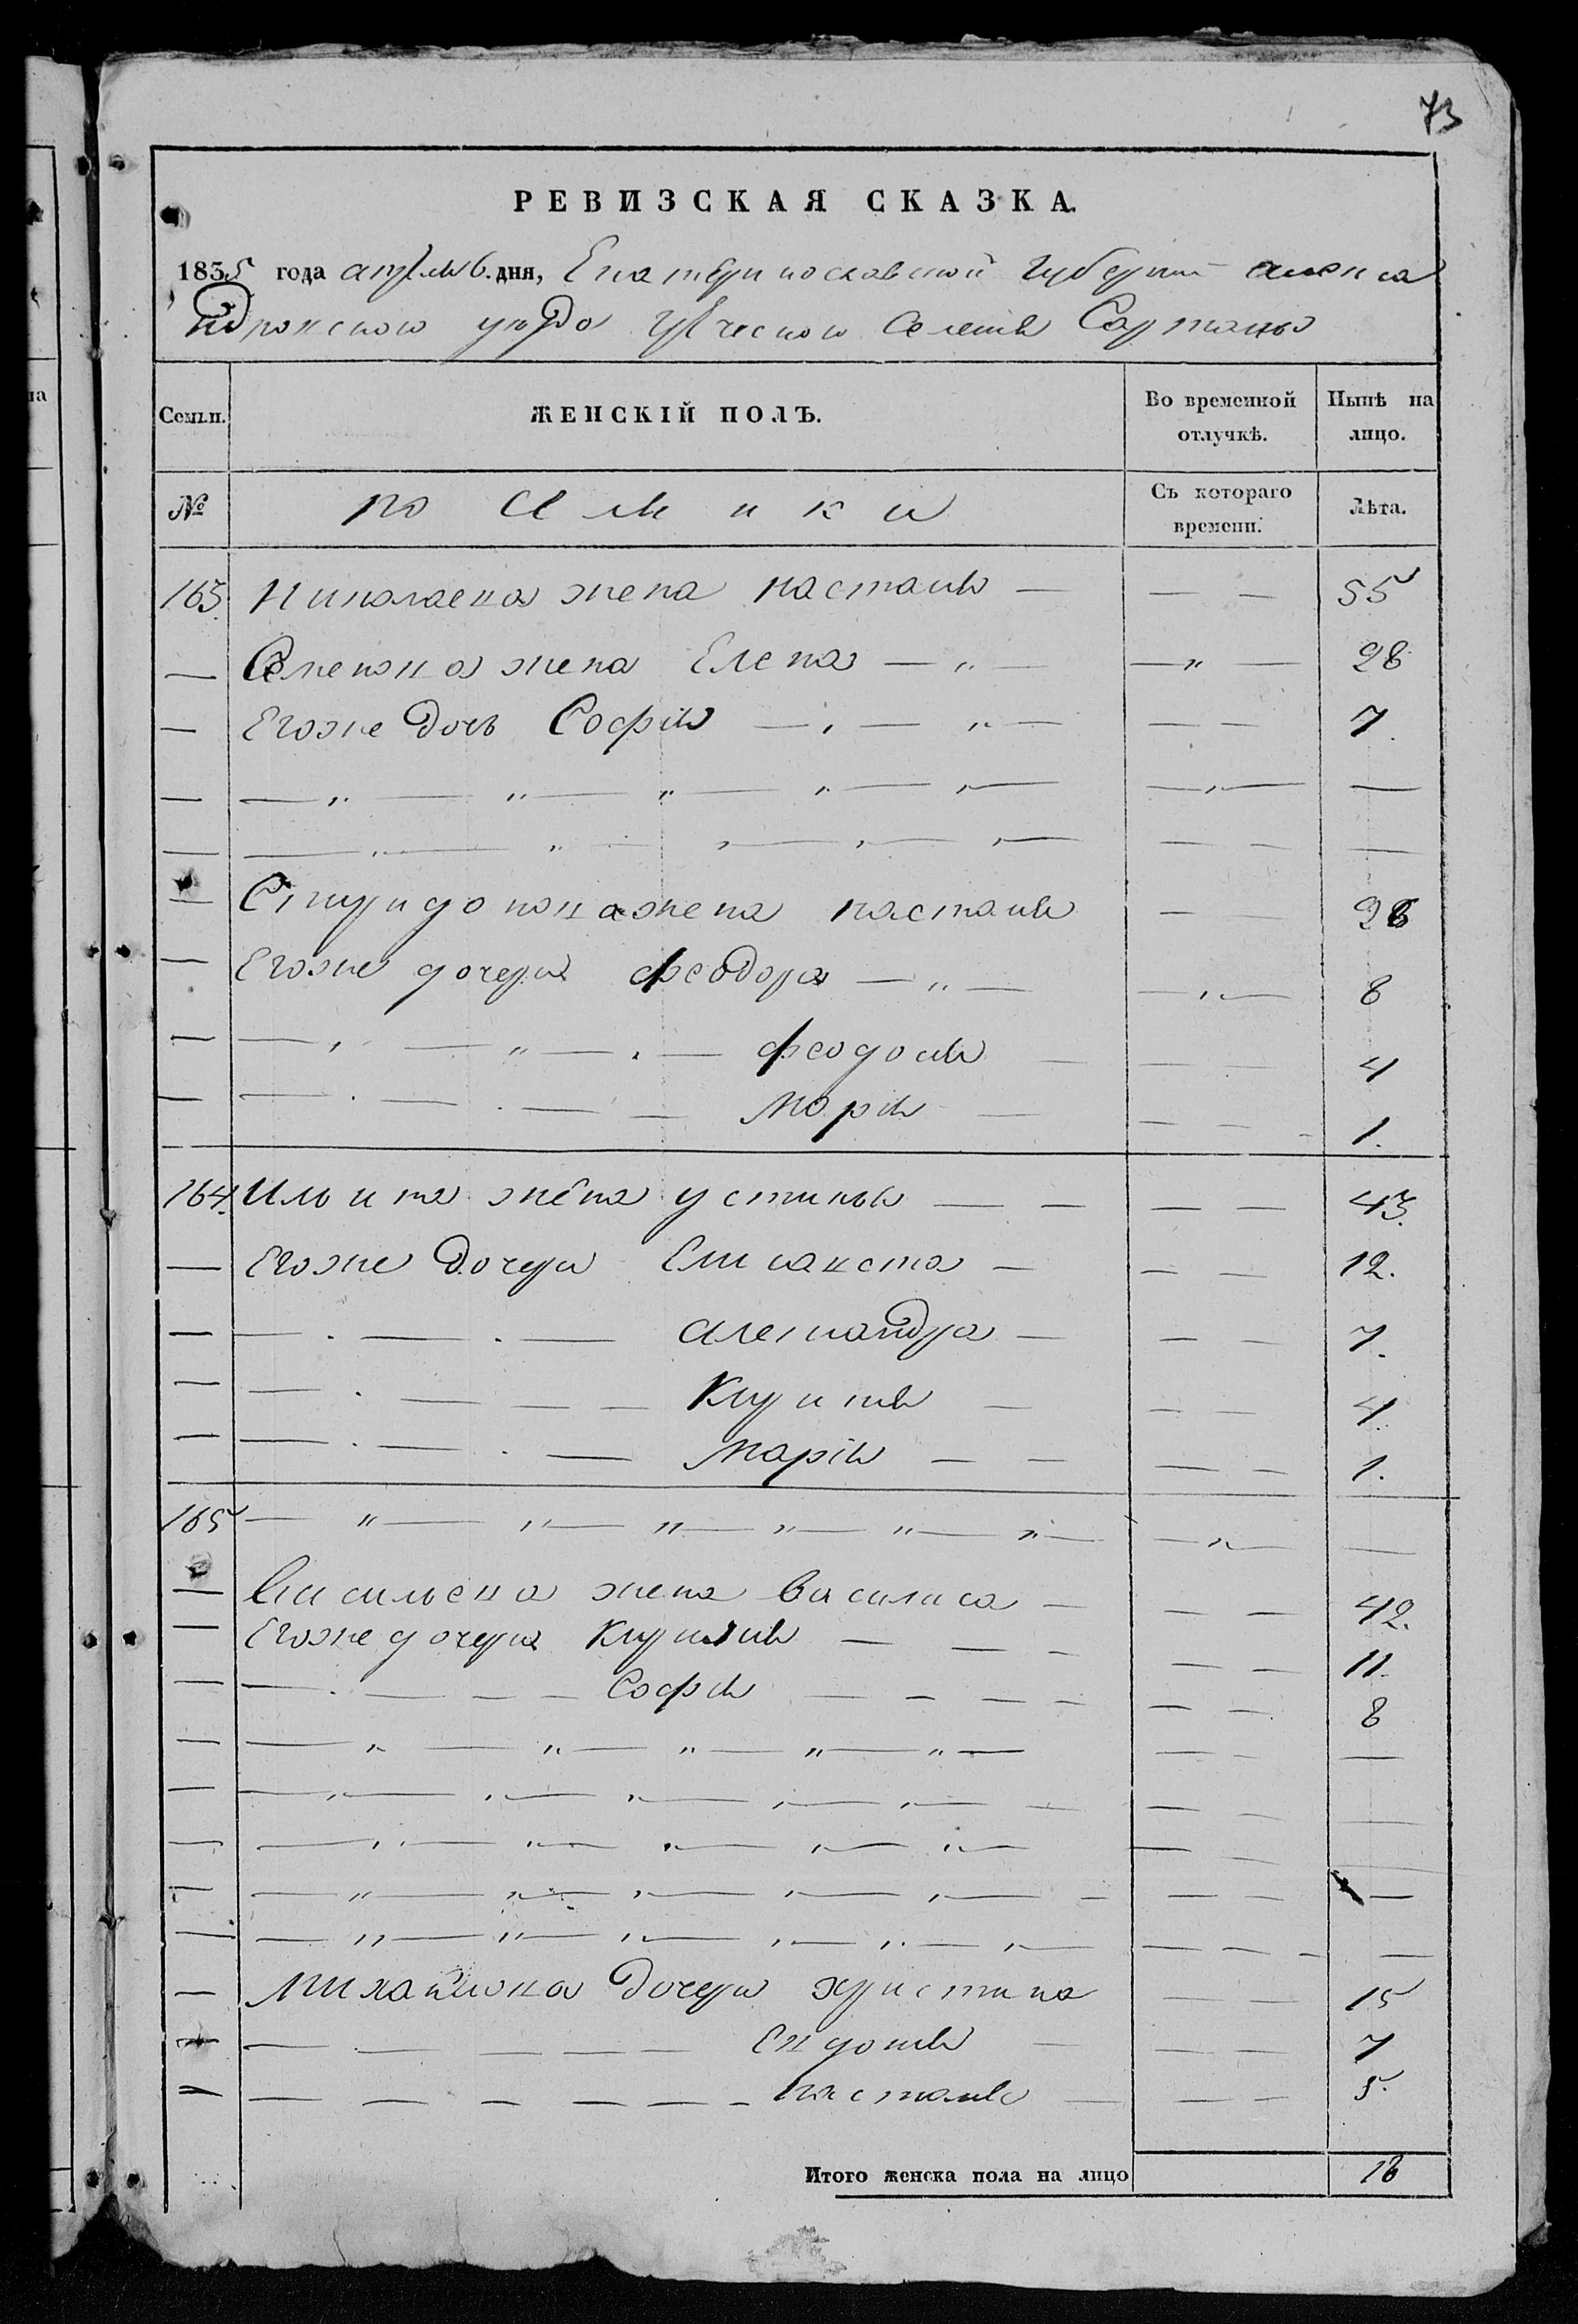 73
РЕВИЗСКАЯ СКАЗКА.
1835 года апреля 6. дня, Екатеринославской Губернии алекса
ндровского уезда греческого Селения Сартаны
Семьи. ЖЕНСКІЙ ПОЛЪ. Во временной отлучкѣ. Нынѣ на лицо.
№ Съ котораго времени. Лѣта.
163. Николаева жена настасия — — — 55
— Семенова жена Елена — „ — — „ — 28
— Егоже дочь Софія — „ — „ — — — 7.
— — „ — „ — „ — „ — „ — — „ — —
— — „ — „ — „ — „ — „ — — — —
— Спиридонова жена настасия — — 28
— Егоже дочери феодора — „ — — „ — 8
— — „ — „ — „ — феодосия — — — 4
— — . — . — — Марія — — — - 1.
164. Ильи жена устиния — — — — 43.
— Егоже дочери — — — 12.
— — . — . — александра — — — 7.
— — . — — — Кирикия — — — 4.
— — . — . — Марія — — — — 1.
165 — „ — „ — „ — „ — „ — „ — — „ — —
— Васильева жена василиса — — — 42.
— Егоже дочери Кирикия — — - — — 11.
— — . — — — Софія — — — - — — 8
— — „ — „ — „ — „ — „ — — — —
— — „ — „ — „ — „ — „ — — — — —
— — „ — „ — „ — „ — „ — — — —
— — „ — „ — „ — „ — „ — - — — —
— — „ — „ — „ — „ — „ — „ — — — - —
— Михайлова дочери христина — — 15
— — — — — — Евдокия — — — 7
— — — — — — - настасия — — — 5.
Итого женска пола на лицо 18